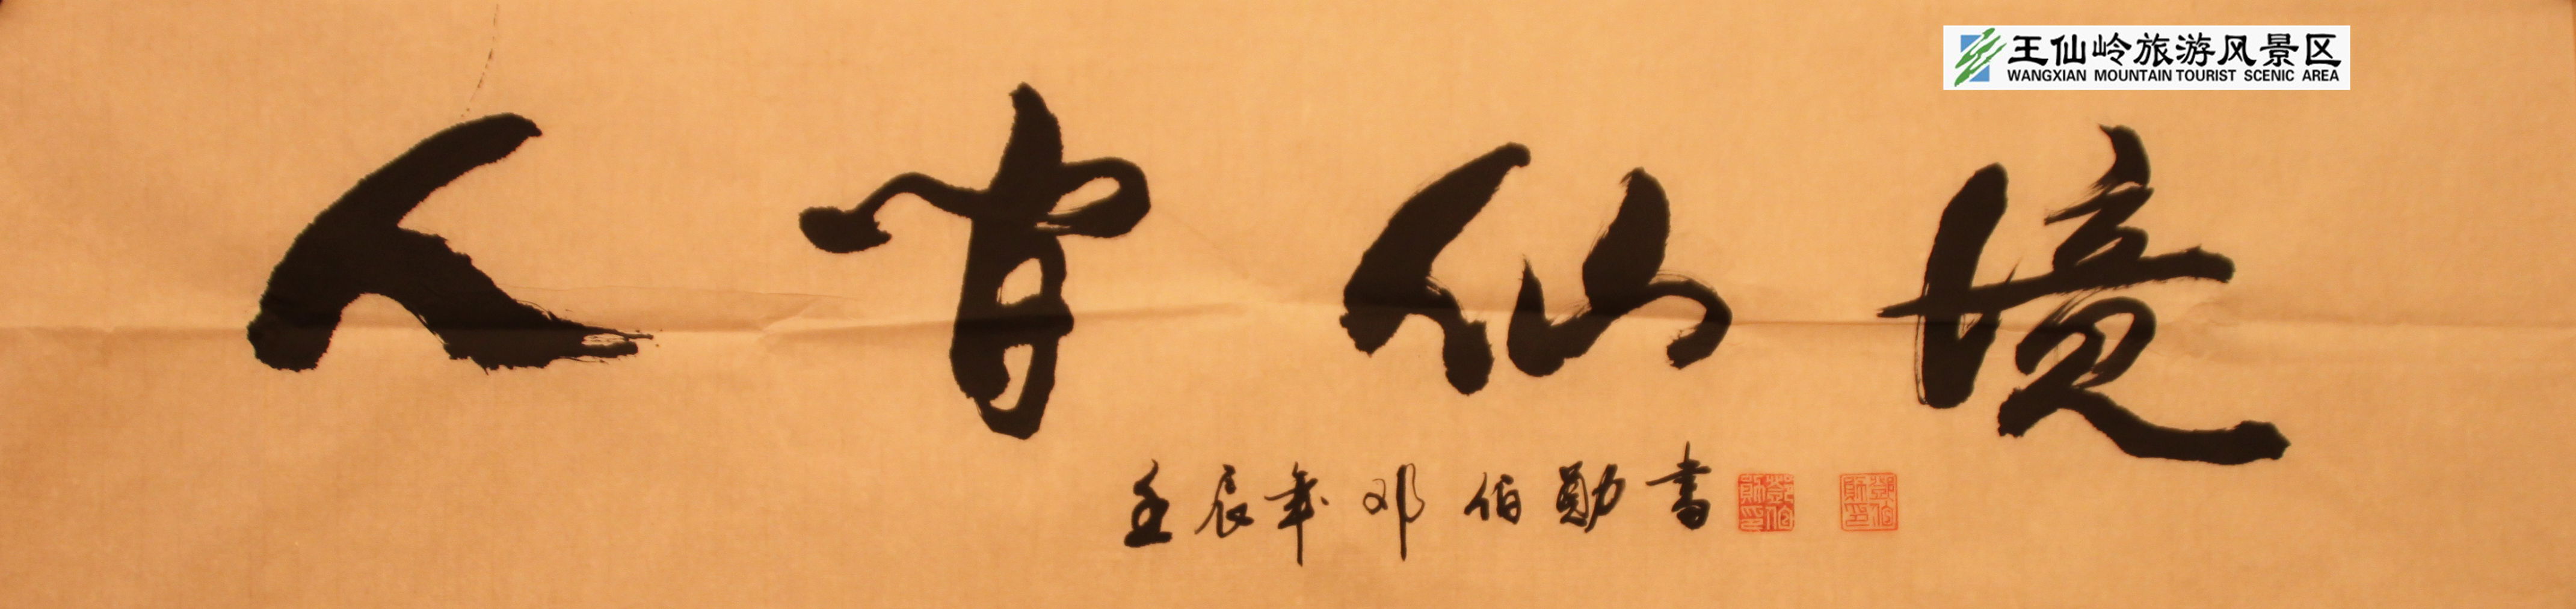 王仙岭旅游风景区
WANGXIAN MOUNTAIN TOURIST SCENIC AREA
人间仙境
壬辰年 邓伯勋书